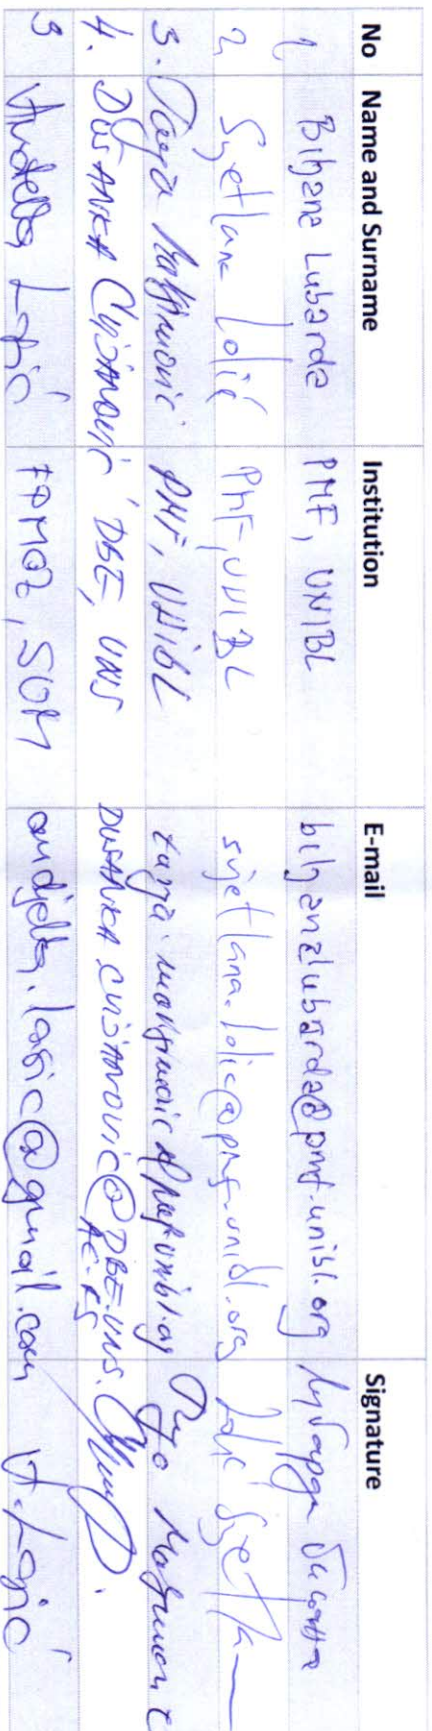 No Name and Surname Institution E-mail Signature
1 Biljana Lubarda PMF, UNIBL biljana.lubarda@pmf.unibl.org Лубарда Биљана
2. Svjetlana Lolić PMF, UNIBL svjetlana.lolic@pmf.unibl.org Lolić Svjetlana
3. Tanja Maksimović PMF, UNIBL tanja.maksimovic@pmf.unibl.org
4. DUŠANKA CVIJANOVIĆ DBE, UNS DUSANKA.CVIJANOVIC@DBE.UNS.AC.RS
5 Anđella Lasić FPMOZ, SUM andjella.lasic@gmail.com A. Lasić